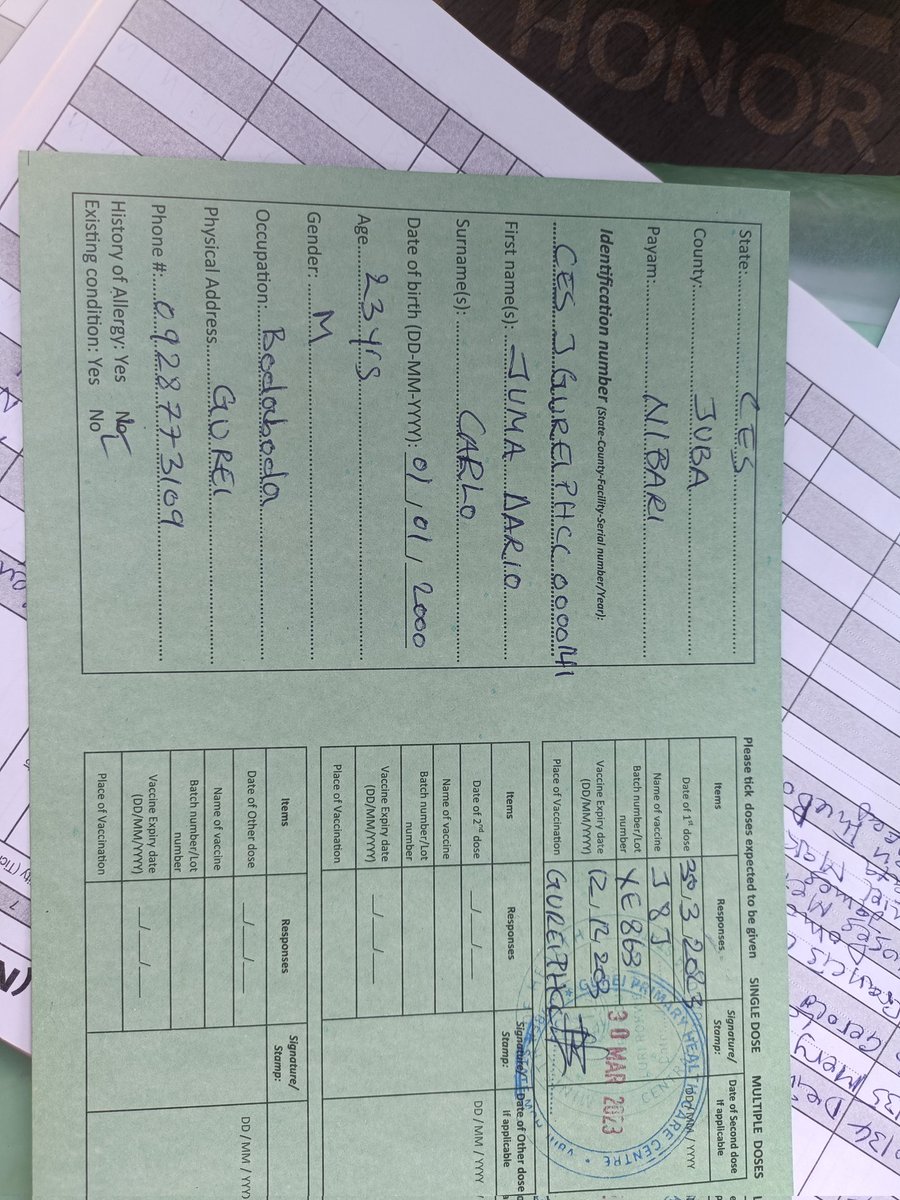 HONOR
State: CES
County: JUBA
Payam: NIBARI
Identification number (State-County-Facility-Serial number/Year):
CES J GUREI PHCC 0000141
First name(s): JUMA DARIO
Surname(s): CARLO
Date of birth (DD-MM-YYYY): 01/01/2000
Age 23yrs
Gender: M
Occupation: Bodaboda
Physical Address GUREI
Phone #: 0928773109
History of Allergy: Yes No
Existing condition: Yes No
Please tick doses expected to be given SINGLE DOSE MULTIPLE DOSES
Items Responses Signature/ Stamp: Date of Second dose if applicable
Date of 1st dose 30.3.2023 DD / MM / YYYY
Name of vaccine J&J
Batch number/Lot number XE868
Vaccine Expiry date (DD/MM/YYYY) 12.12.203 30 MAR 2023
Place of Vaccination GUREI PHCC
GUREI PRIMARY HEALTH CARE CENTRE
Items Responses Signature/ Stamp: Date of Other dose if applicable
Date of 2nd dose __/__/__ DD / MM / YYYY
Name of vaccine
Batch number/Lot number
Vaccine Expiry date (DD/MM/YYYY) __/__/__
Place of Vaccination
Items Responses Signature/ Stamp:
Date of Other dose __/__/__ DD / MM / YYYY
Name of vaccine
Batch number/Lot number
Vaccine Expiry date (DD/MM/YYYY) __/__/__
Place of Vaccination